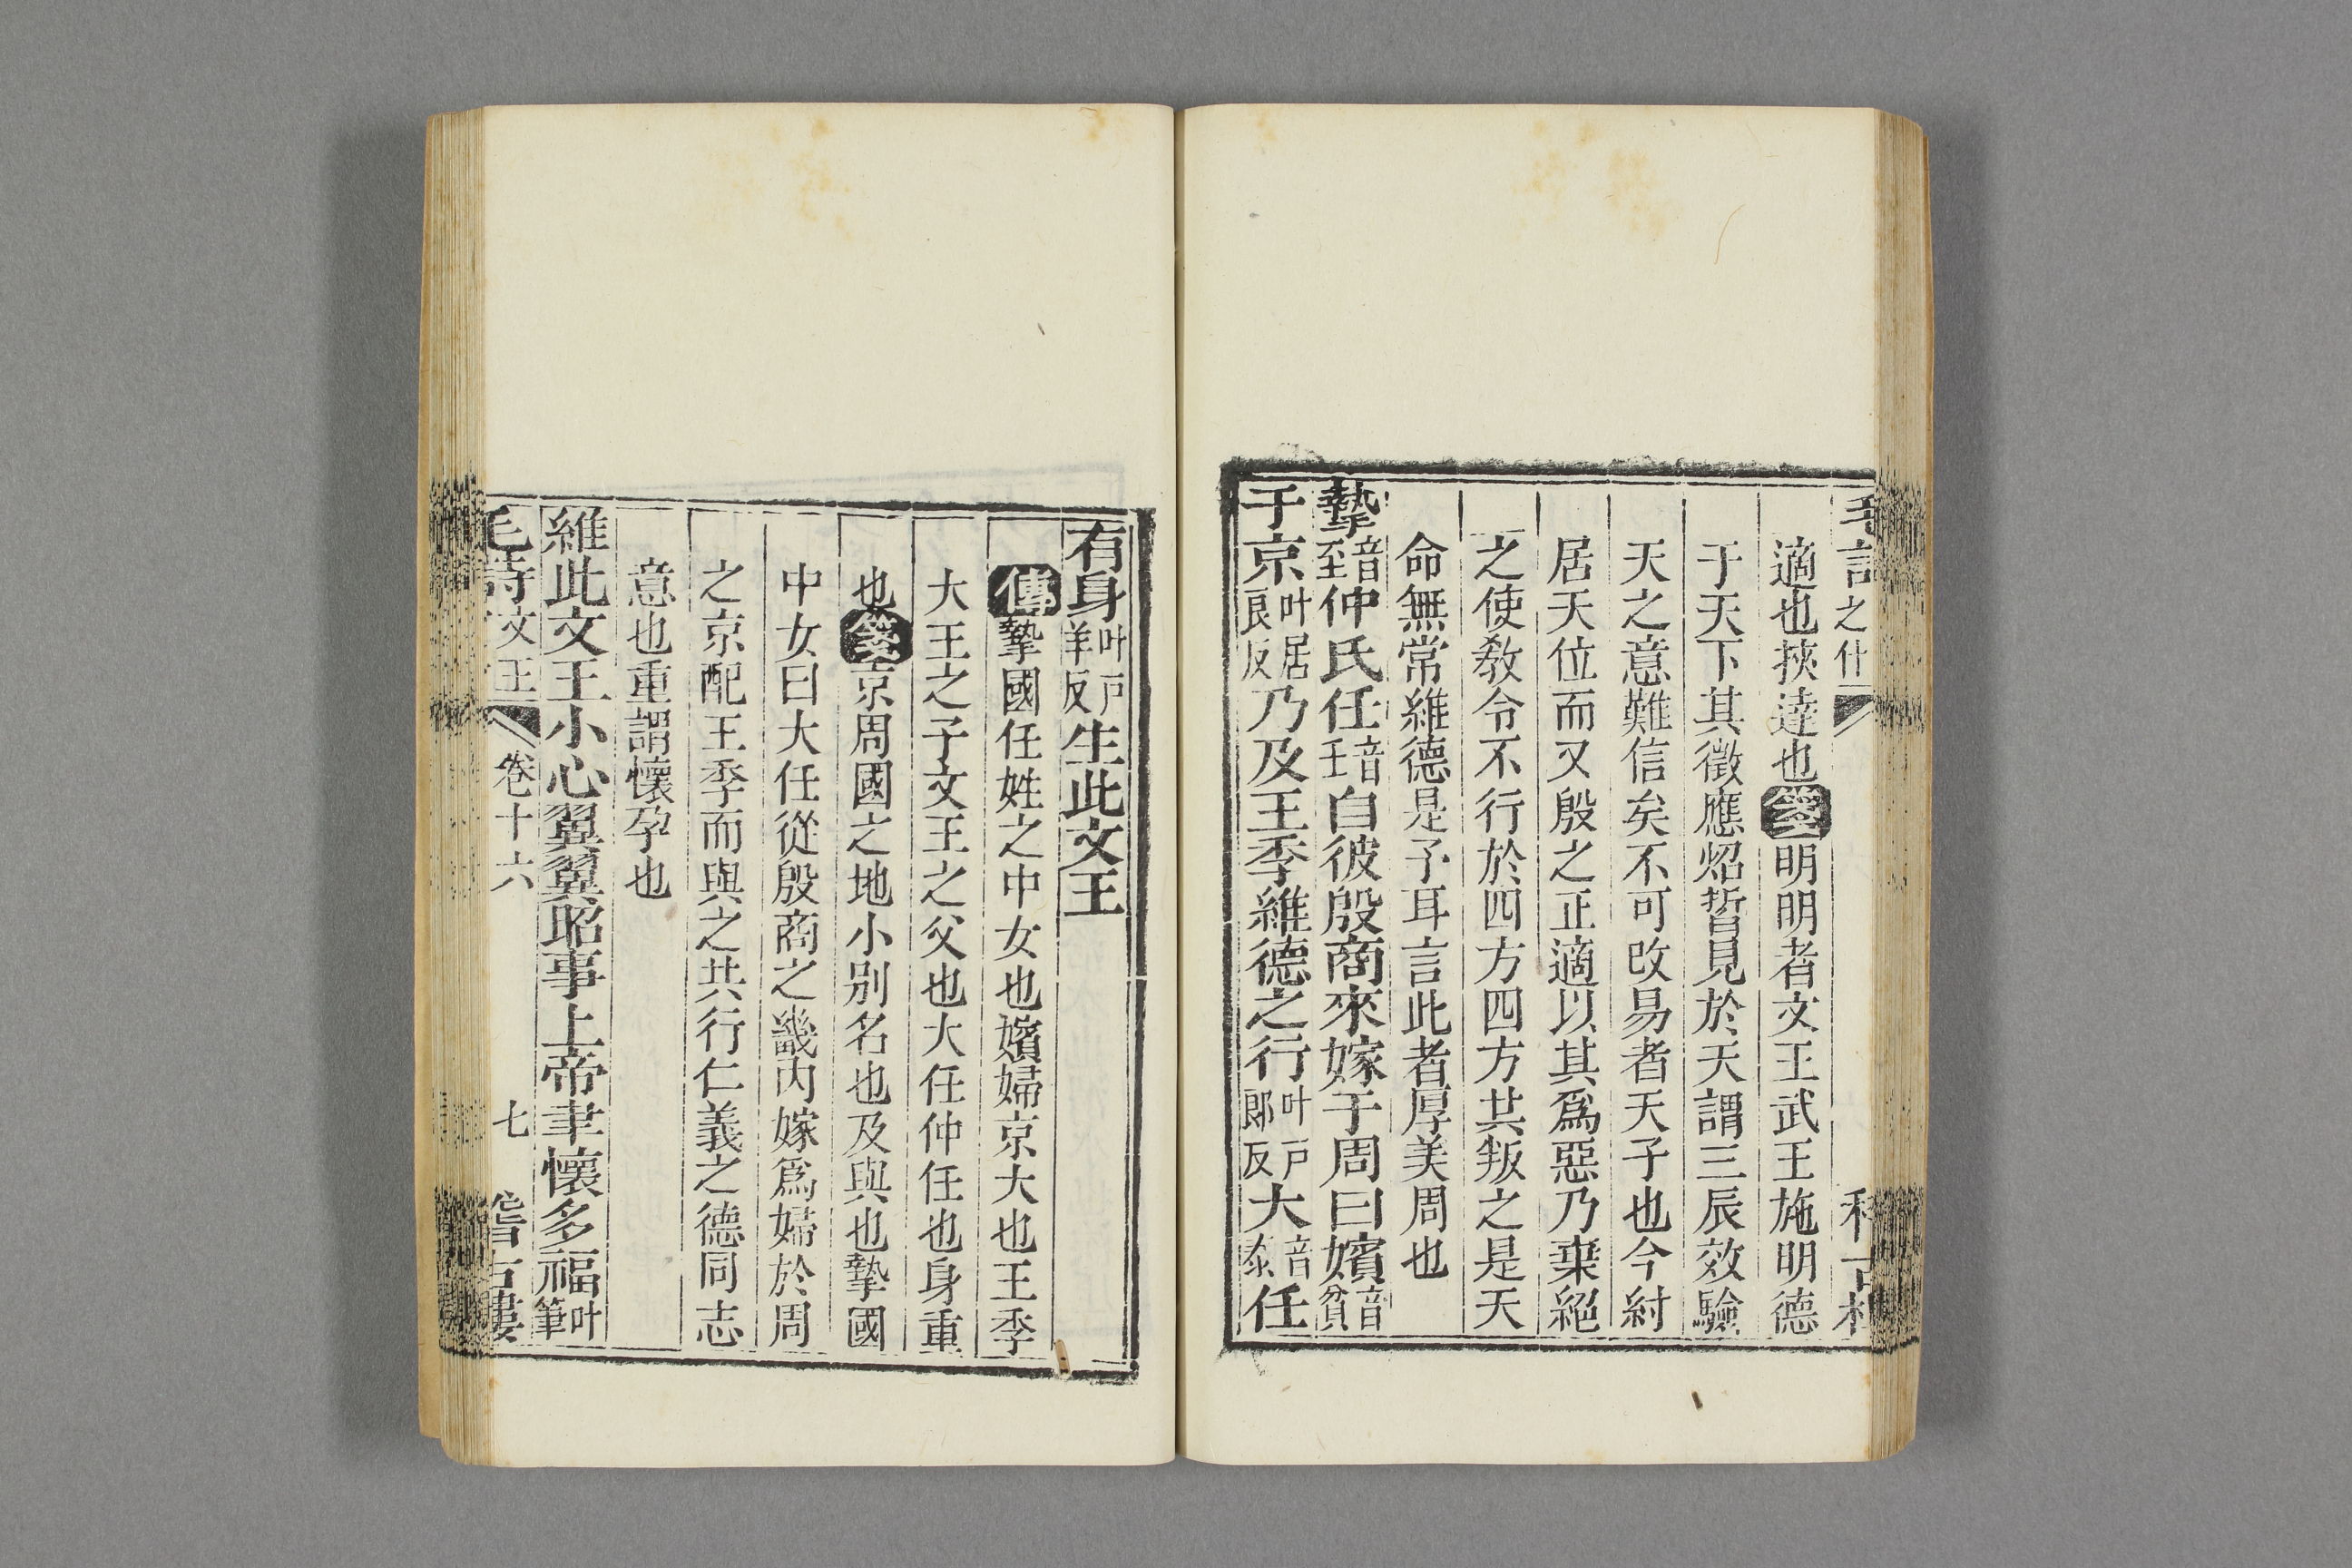 適也挾達也箋明明者文王武王施明德
于天下其徵應炤晢見於天謂三辰效驗
天之意難信矣不可改易者天子也今紂
居天位而又殷之正適以其爲惡乃棄絕
之使敎令不行於四方四方共叛之是天
命無常維德是予耳言此者厚美周也
摯音至仲氏任音壬自彼殷商來嫁于周曰嬪音貧
于京叶居良反乃及王季維德之行叶戸郞反大音泰任
有身叶戸羊反生此文王
傳摯國任姓之中女也嬪婦京大也王季
大王之子文王之父也大任仲任也身重
也箋京周國之地小别名也及與也摯國
中女曰大任從殷商之畿內嫁爲婦於周
之京配王季而與之共行仁義之德同志
意也重謂懷孕也
維此文王小心翼翼昭事上帝聿懷多福叶筆
毛詩文王 卷十六 七 稽古樓